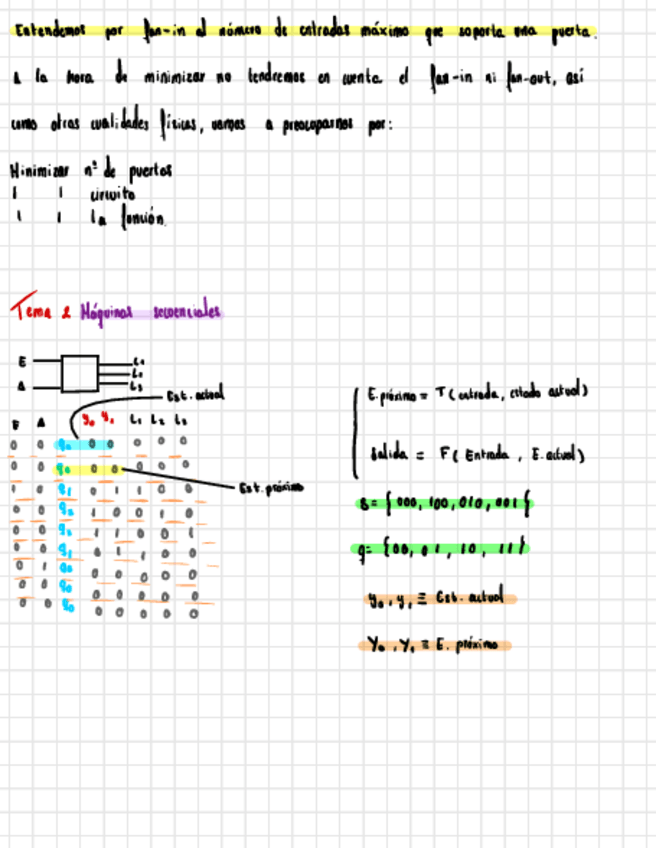 Entendemos por fan-in al número de entradas máximo que soporta una puerta.
A la hora de minimizar no tendremos en cuenta el fan-in ni fan-out, así
como otras cualidades físicas, vamos a preocuparnos por:
Minimizar nº de puertos
circuito
la función.
Tema 2 Máquinas secuenciales
E L1
L2
A L3
Est. actual
E A y0 y1 L1 L2 L3
0 0 q0 0 0 0 0 0
0 0 q0 0 0 0 0 0
Est. próximo
E.próximo = T (entrada, estado actual)
Salida = F( Entrada, E.actual)
S = { 000, 100, 010, 001 }
q = {00, 01, 10, 11}
y0, y1 ≡ Est. actual
Y0, Y1 ≡ E. próximo